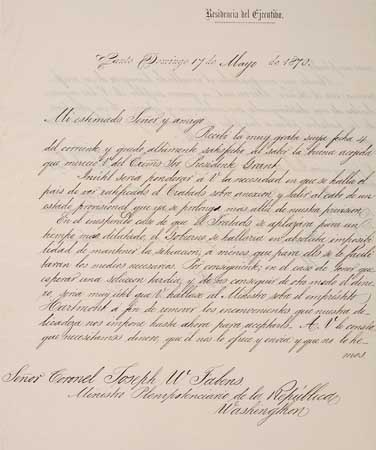 Residencia del Ejecutivo.
Santo Domingo 17 de Mayo de 1870.
Mi estimado Señor y amigo
Recibí la muy grata suya fecha 4
del corriente y quedo altamente satisfecho al saber la buena acogida
que mereció Vd del Exmo Sor Presidente Grant.
Inútil sería ponderar á Vd la necesidad en que se halla el
país de ver ratificado el Tratado sobre anexion, y salir al cabo de un
estado provisional que ya se prolonga mas allá de nuestra prevision.
En el inesperado caso de que el Tratado se aplazara para un
tiempo mas dilatado, el Gobierno se hallaria en absoluta imposibi
lidad de mantener la situacion, á menos que para ello se le facili
taran los medios necesarios. Por consiguiente, en el caso de tener que
esperar una solucion tardia, y de no conseguir de otro modo el dine
ro, seria muy útil que Vd hablara al Ministro sobre el empréstito
Hartmont á fin de remover los inconvenientes que nuestra de
licadeza nos impone hasta ahora para aceptarlo. A Vd le consta
que necesitamos dinero, que él nos lo ofrece y envia y que no lo he
mos
Señor Coronel Joseph W. Fabens
Ministro Plenipotenciario de la República
Washington